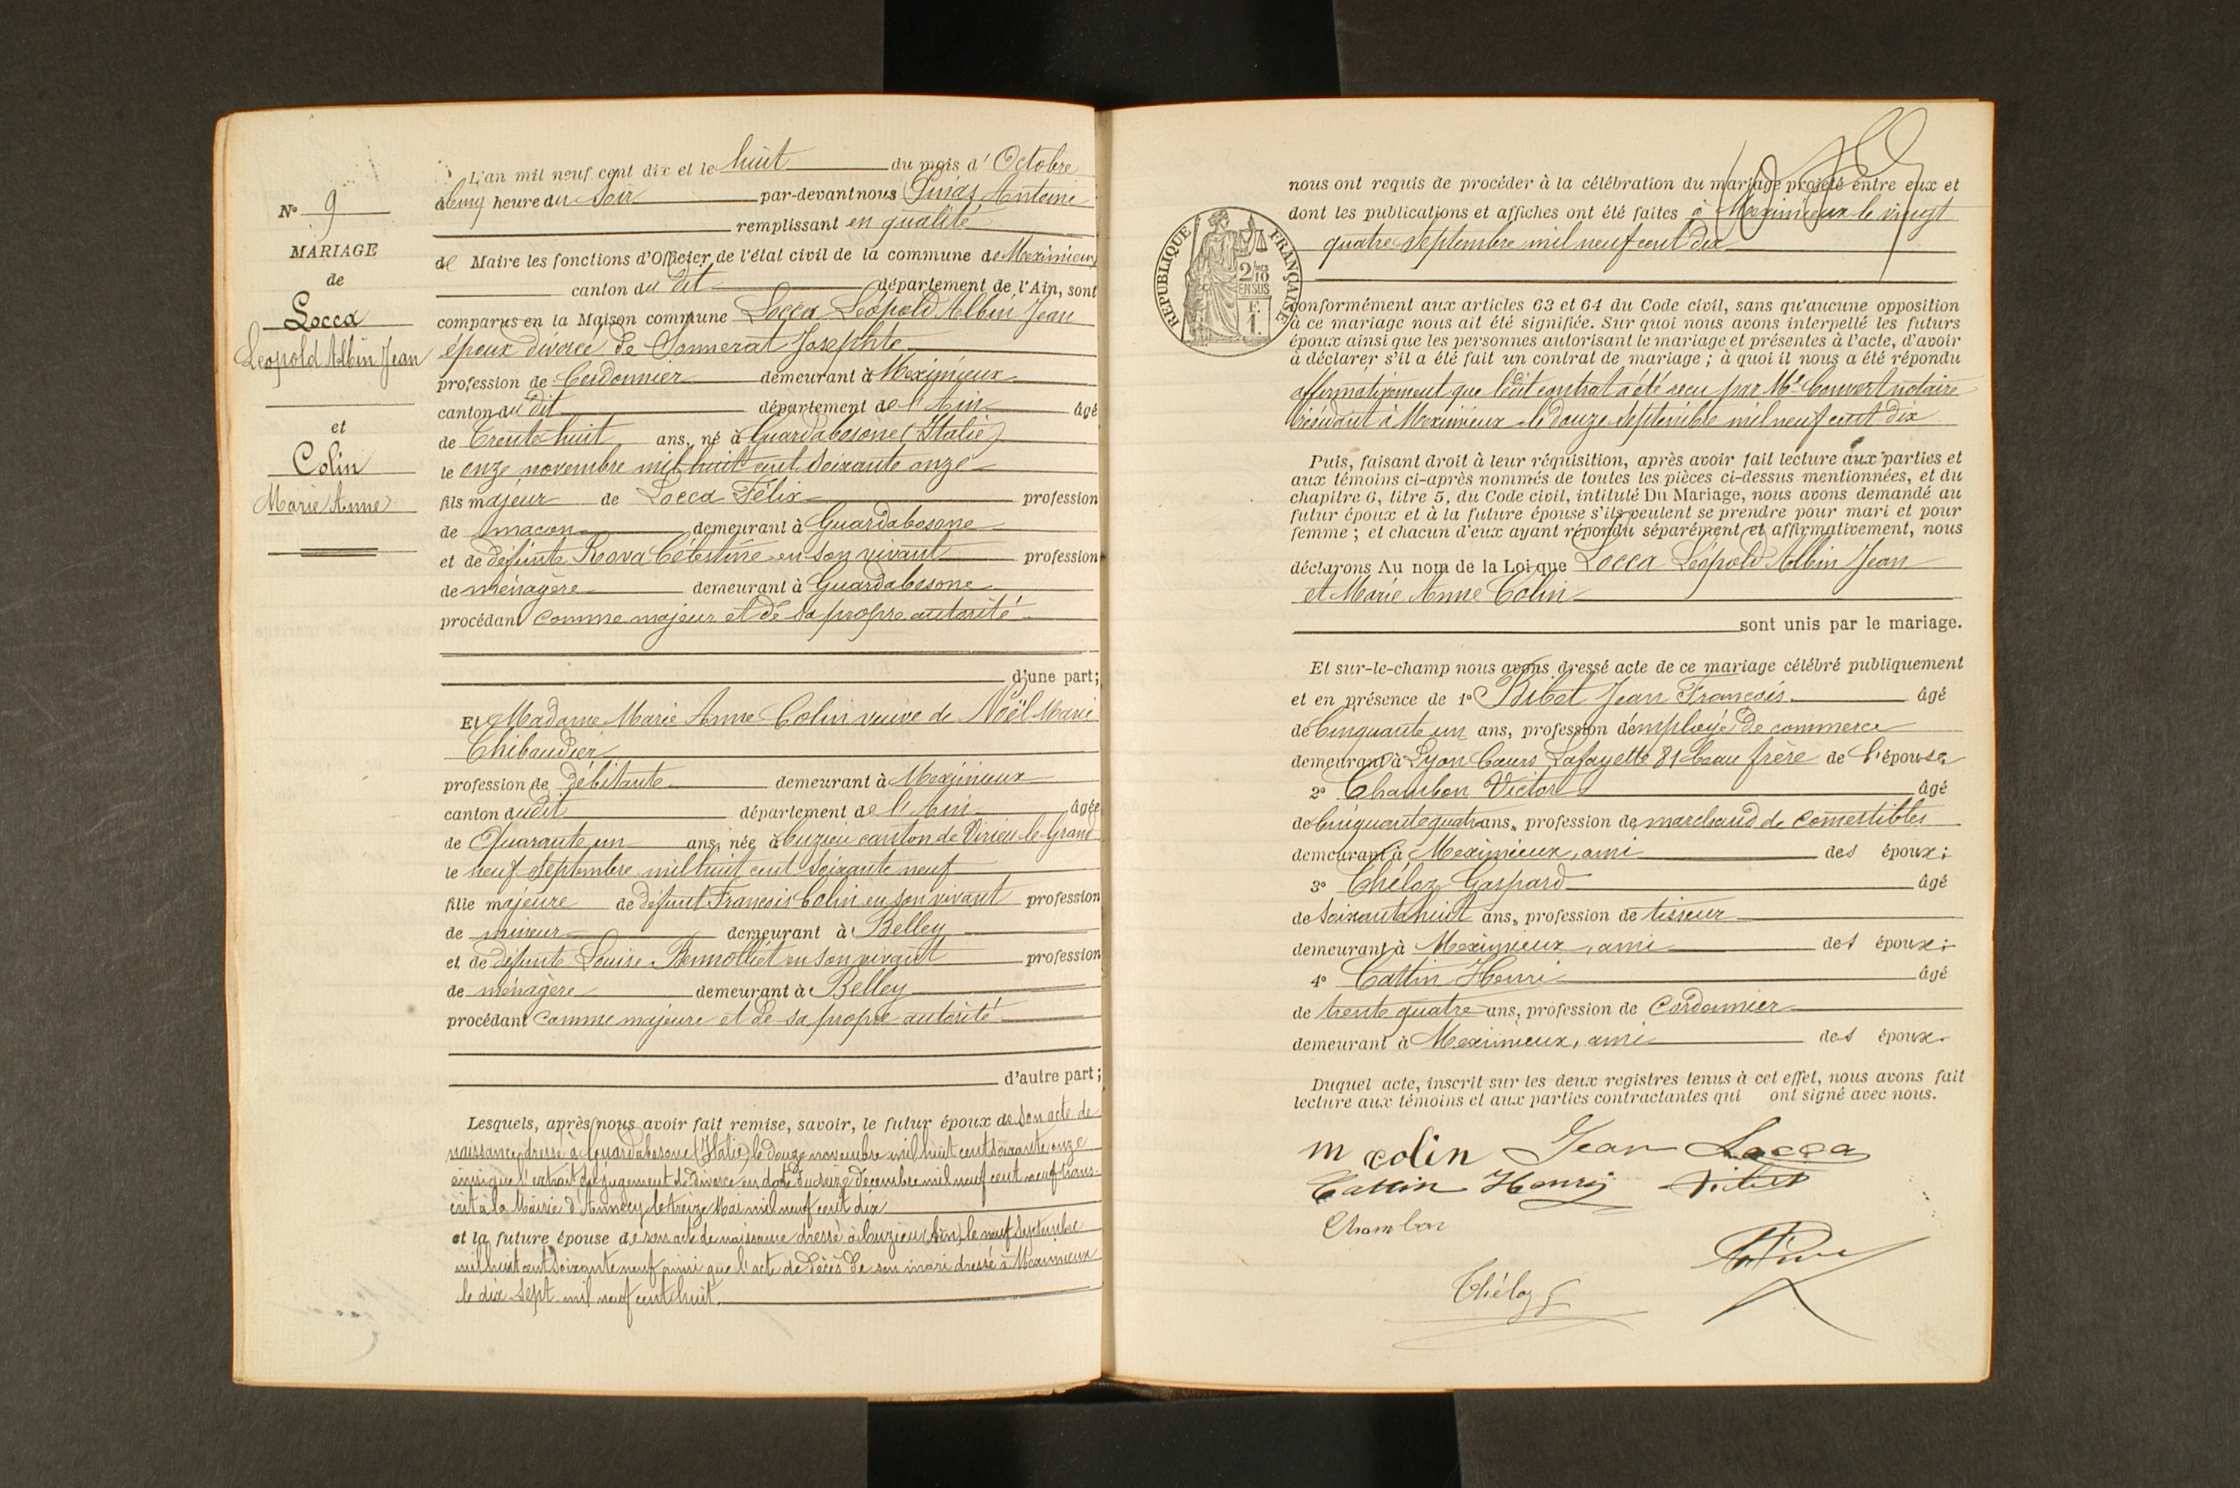 N° 9
MARIAGE
de
Locca
Léopold Albin Jean
et
Colin
Marie Anne
L'an mil neuf cent dix et le huit du mois d'Octobre
à cinq heure du soir par-devant nous Antoine
remplissant en qualité
de Maire les fonctions d'Officier de l'état civil de la commune de Meximieux
canton du dit département de l'Ain, sont
comparus en la Maison commune Locca Léopold Albin Jean
époux divorcé de Josephte
profession de Cordonnier demeurant à Meximieux
canton du dit département de l'Ain âgé
de Trente huit ans, né à Guardabosone (Italie)
le onze novembre mil huit cent soixante onze
fils majeur de Locca Félix profession
de maçon demeurant à Guardabosone
et de défunte Célestine en son vivant profession
de ménagère demeurant à Guardabosone
procédant comme majeur et de sa propre autorité
d'une part;
Et Madame Marie Anne Colin veuve de Noël Marie
Thibaudier
profession de débitante demeurant à Meximieux
canton dudit département de l'Ain âgée
de Quarante un ans, née à Cuzieu canton de Virieu-le-Grand
le neuf Septembre mil huit cent soixante neuf
fille majeure de défunt François Colin en son vivant profession
de mineur demeurant à Belley
et de défunte Louise en son vivant profession
de ménagère demeurant à Belley
procédant comme majeure et de sa propre autorité
d'autre part;
Lesquels, après nous avoir fait remise, savoir, le futur époux de son acte de
naissance dressé à Guardabosone (Italie) le douze novembre mil huit cent soixante onze
ainsi que l'extrait du jugement de divorce en date du seize décembre mil neuf cent neuf trans-
crit à la Mairie d'Annecy le treize Mai mil neuf cent dix
et la future épouse de son acte de naissance dressé à Cuzieu (Ain) le neuf Septembre
mil huit cent soixante neuf ainsi que l'acte de décès de son mari dressé à Meximieux
le dix sept mil neuf cent huit.
nous ont requis de procéder à la célébration du mariage projeté entre eux et
dont les publications et affiches ont été faites à Meximieux le vingt
quatre septembre mil neuf cent dix
REPUBLIQUE FRANÇAISE
2/10 EN SUS
F. 1.
conformément aux articles 63 et 64 du Code civil, sans qu'aucune opposition
à ce mariage nous ait été signifiée. Sur quoi nous avons interpellé les futurs
époux ainsi que les personnes autorisant le mariage et présentes à l'acte, d'avoir
à déclarer s'il a été fait un contrat de mariage ; à quoi il nous a été répondu
affirmativement que ledit contrat a été reçu par Me Convert notaire
résidant à Meximieux le douze septembre mil neuf cent dix
Puis, faisant droit à leur réquisition, après avoir fait lecture aux parties et
aux témoins ci-après nommés de toutes les pièces ci-dessus mentionnées, et du
chapitre 6, titre 5, du Code civil, intitulé Du Mariage, nous avons demandé au
futur époux et à la future épouse s'ils veulent se prendre pour mari et pour
femme ; et chacun d'eux ayant répondu séparément et affirmativement, nous
déclarons Au nom de la Loi que Locca Léopold Albin Jean
et Marie Anne Colin
sont unis par le mariage.
Et sur-le-champ nous avons dressé acte de ce mariage célébré publiquement
et en présence de 1° Jean François âgé
de Cinquante un ans, profession d'employé de commerce
demeurant à Lyon Cours Lafayette 81 beau frère de l'épouse
2° Chambon Victor âgé
de Cinquante quatre ans, profession de marchand de comestibles
demeurant à Meximieux, ami des époux;
3° Théloz Gaspard âgé
de soixante huit ans, profession de tisseur
demeurant à Meximieux, ami des époux;
4° Cattin Henri âgé
de trente quatre ans, profession de Cordonnier
demeurant à Meximieux, ami des époux.
Duquel acte, inscrit sur les deux registres tenus à cet effet, nous avons fait
lecture aux témoins et aux parties contractantes qui ont signé avec nous.
m colin Jean Locca
Cattin Henri
Chambon
Théloz G